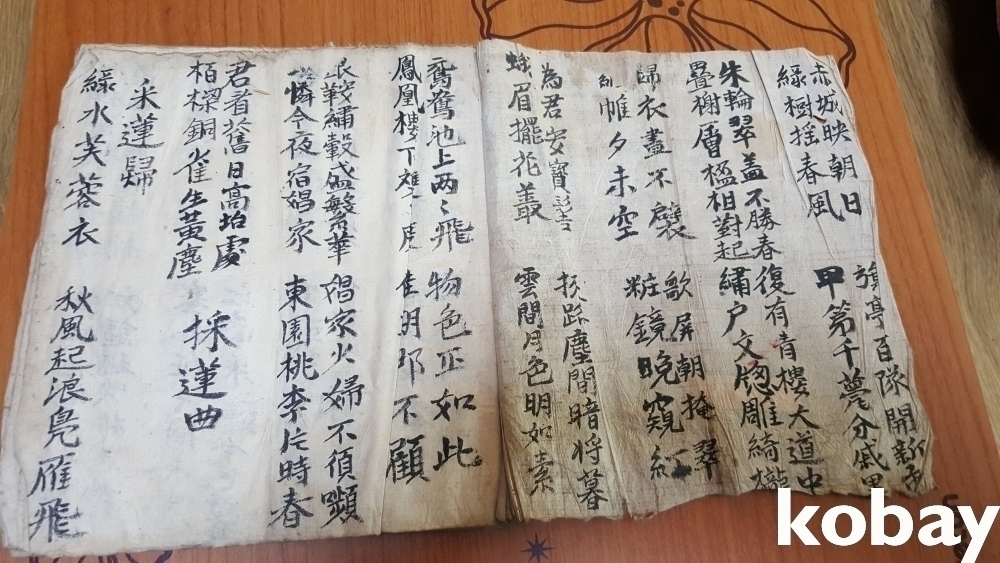 赤城映朝日
綠樹搖春風
旗亭百隊開新市
甲第千甍分戚里
朱輪翠盖不勝春
疊榭層楹相對起
復有青樓大道中
繡戶文窓雕綺櫳
歸衣晝不襞
帷夕未空
歌屏朝掩翠
粧鏡晚窺紅
為君安寶髻
蛾眉擺花叢
挾路塵間暗将暮
雲間月色明如素
鴛鴦池上两〻飛
鳳凰樓下雙〻度
物色正如此
佳期那不顧
銀鞍繡轂盛繁華
憐今夜宿娼家
娼家少婦不須嚬
東園桃李片時春
君看舊日高坮處
栢樑銅雀生黃塵
採蓮曲
采蓮歸
綠水芙蓉衣
秋風起浪鳧雁飛
kobay